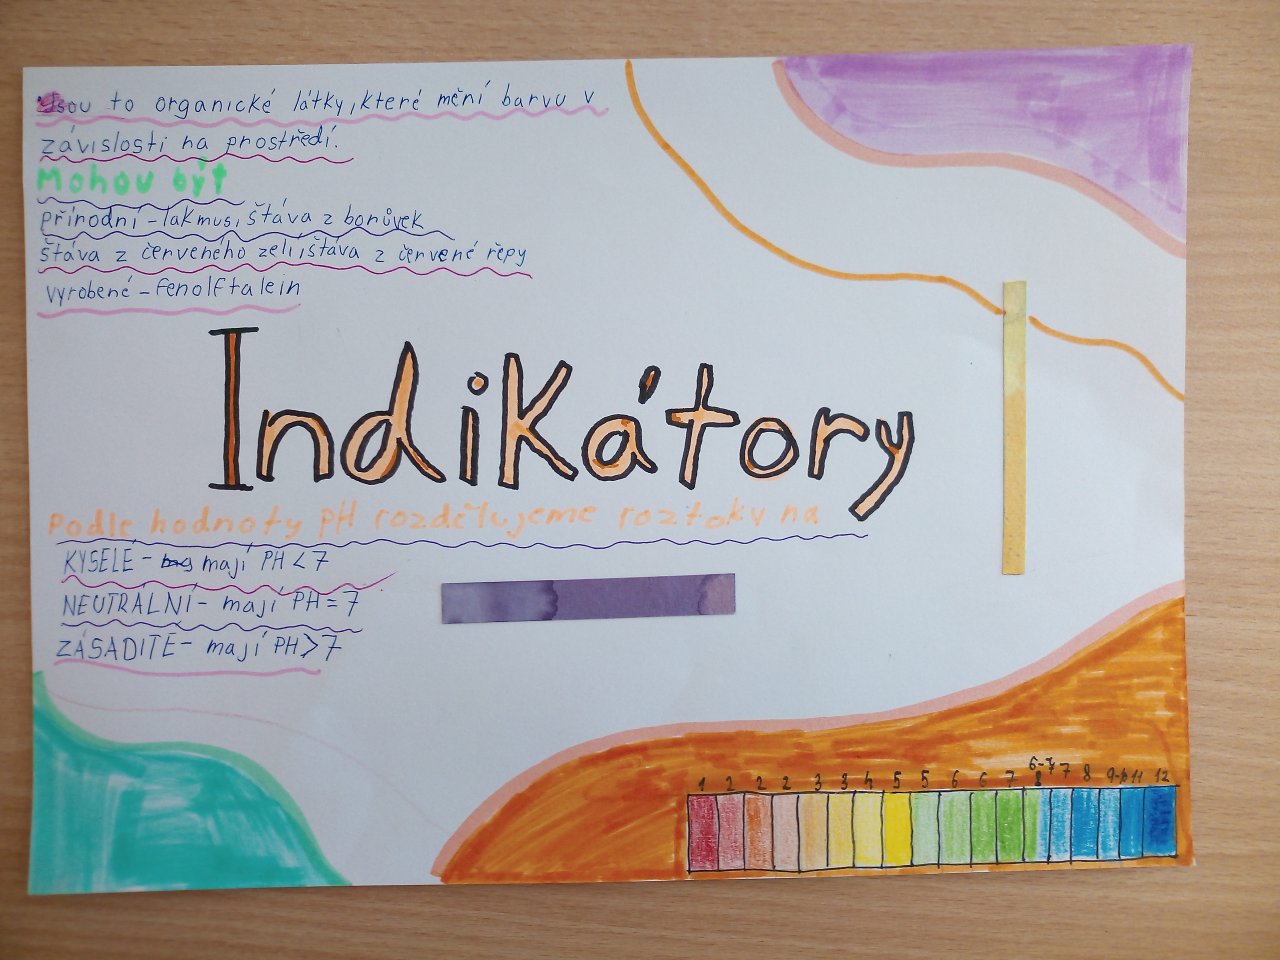 Jsou to organické látky, které mění barvu v
závislosti na prostředí.
Mohou být
přírodní - lakmus, štáva z borůvek
štáva z červeného zelí, štáva z červené řepy
vyrobené - fenolftalein
Indikátory
Podle hodnoty pH rozdělujeme roztoky na
KYSELÉ - mají PH < 7
NEUTRÁLNÍ - mají PH = 7
ZÁSADITÉ - mají PH > 7
1 2 2 2 3 3 4 5 5 6 6 7 6-7 8 7 8 9-10 11 12